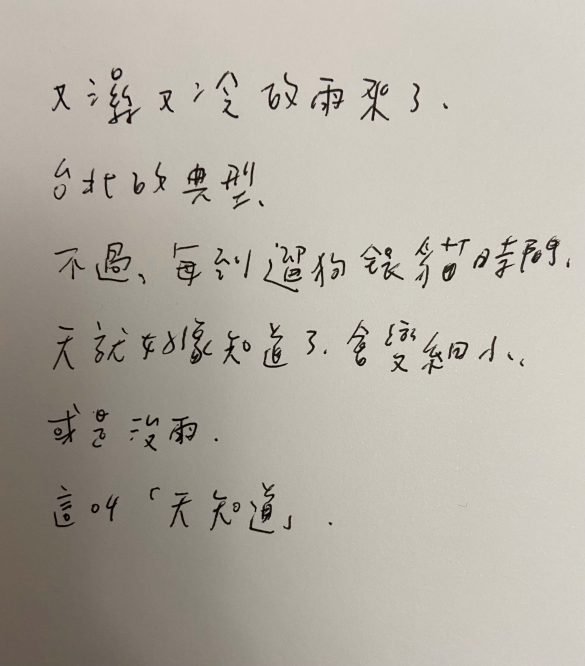 又濕又冷的雨來了.
台北的典型、
不過、每到遛狗餵貓時間、
天就好像知道了.會變細小、
或是沒雨.
這叫「天知道」.